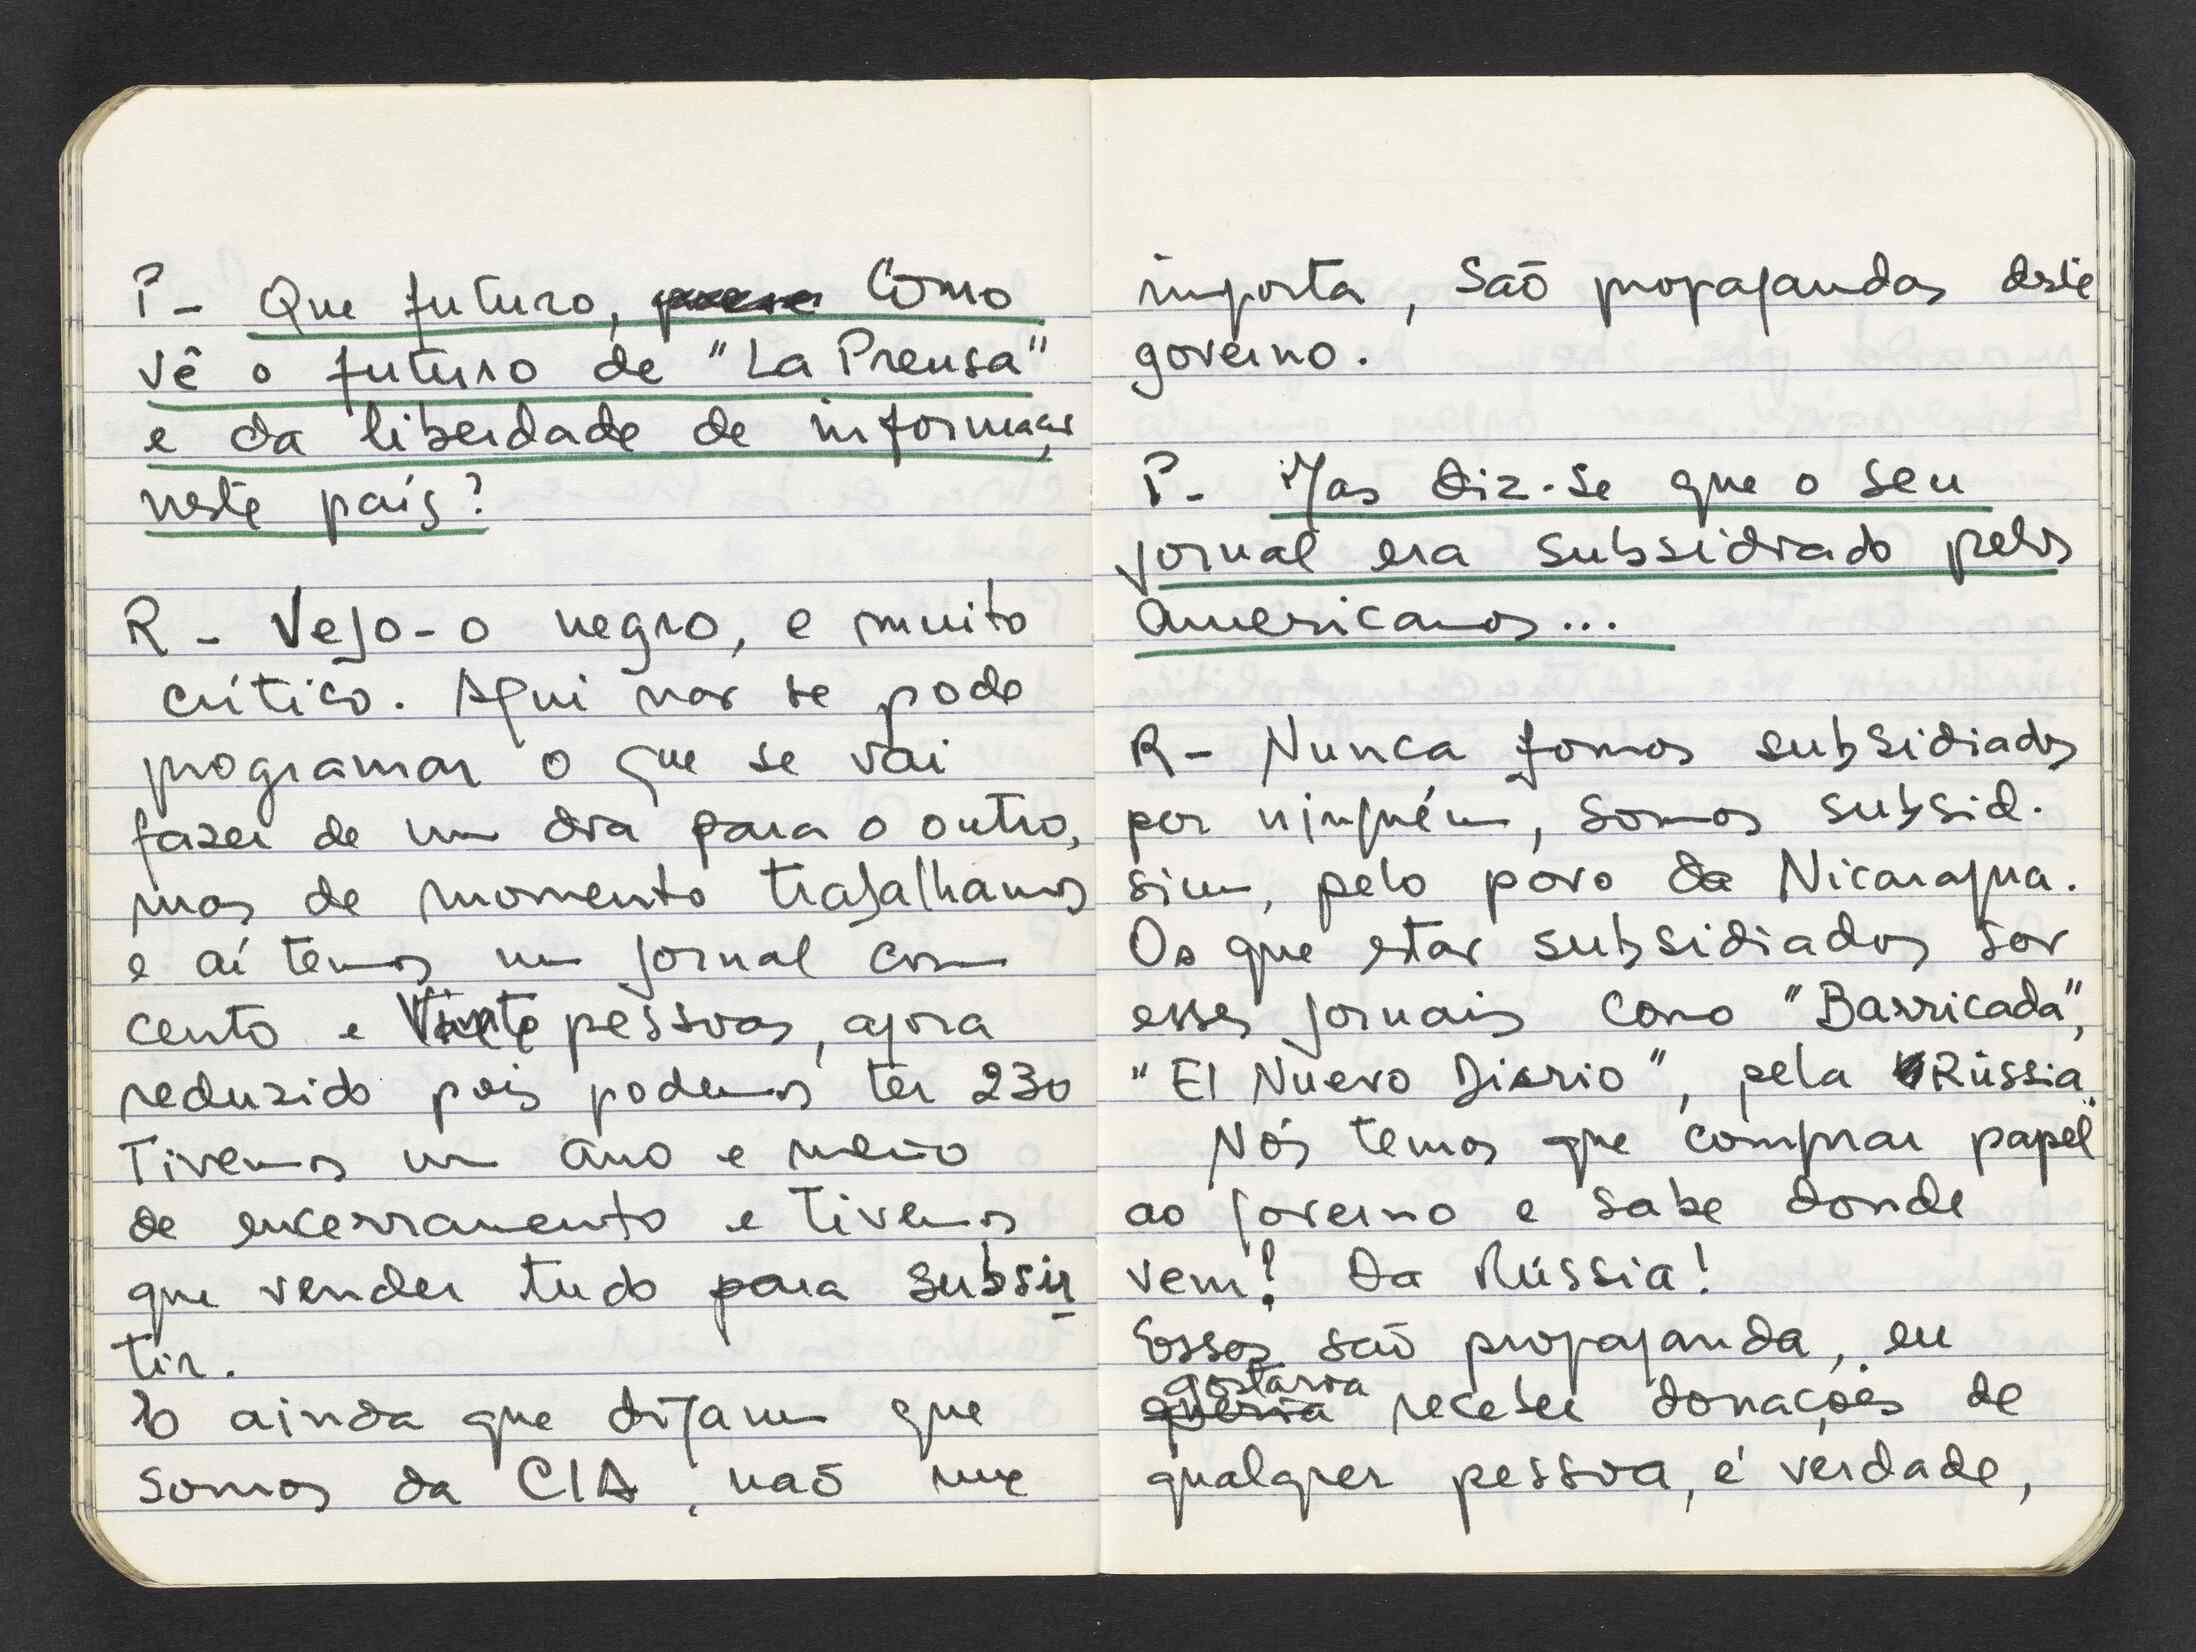 P- Que futuro, Como
vê o futuro de "La Prensa"
e da liberdade de informaçar
neste país?
R- Vejo-o negro, e muito
crítico. Aqui nar se pode
programar o que se vai
fazer de um dia para o outro,
mas de momento trabalhamos
e aí temos um jornal com
cento e vinte pessoas, agora
reduzido pois podemos ter 230
Tivemos um ano e meio
de encerramento e tivemos
que vender tudo para subsis
tir.
E ainda que digam que
somos da CIA, naõ me
importa, Saõ propagandas deste
governo.
P- Mas diz-se que o seu
jornal era subsidiado pelos
americanos...
R- Nunca fomos subsidiados
por ninguém, somos subsid.
sim, pelo povo da Nicaragua.
Os que estar subsidiados sor
esses jornais como "Barricada",
"El Nuevo Diario", pela Rússia.
Nós temos que comprar papel
ao governo e sabe donde
vem? Da Rússia!
Essas saõ propaganda, eu
gostaria
queria receber donações de
qualquer pessoa, é verdade,